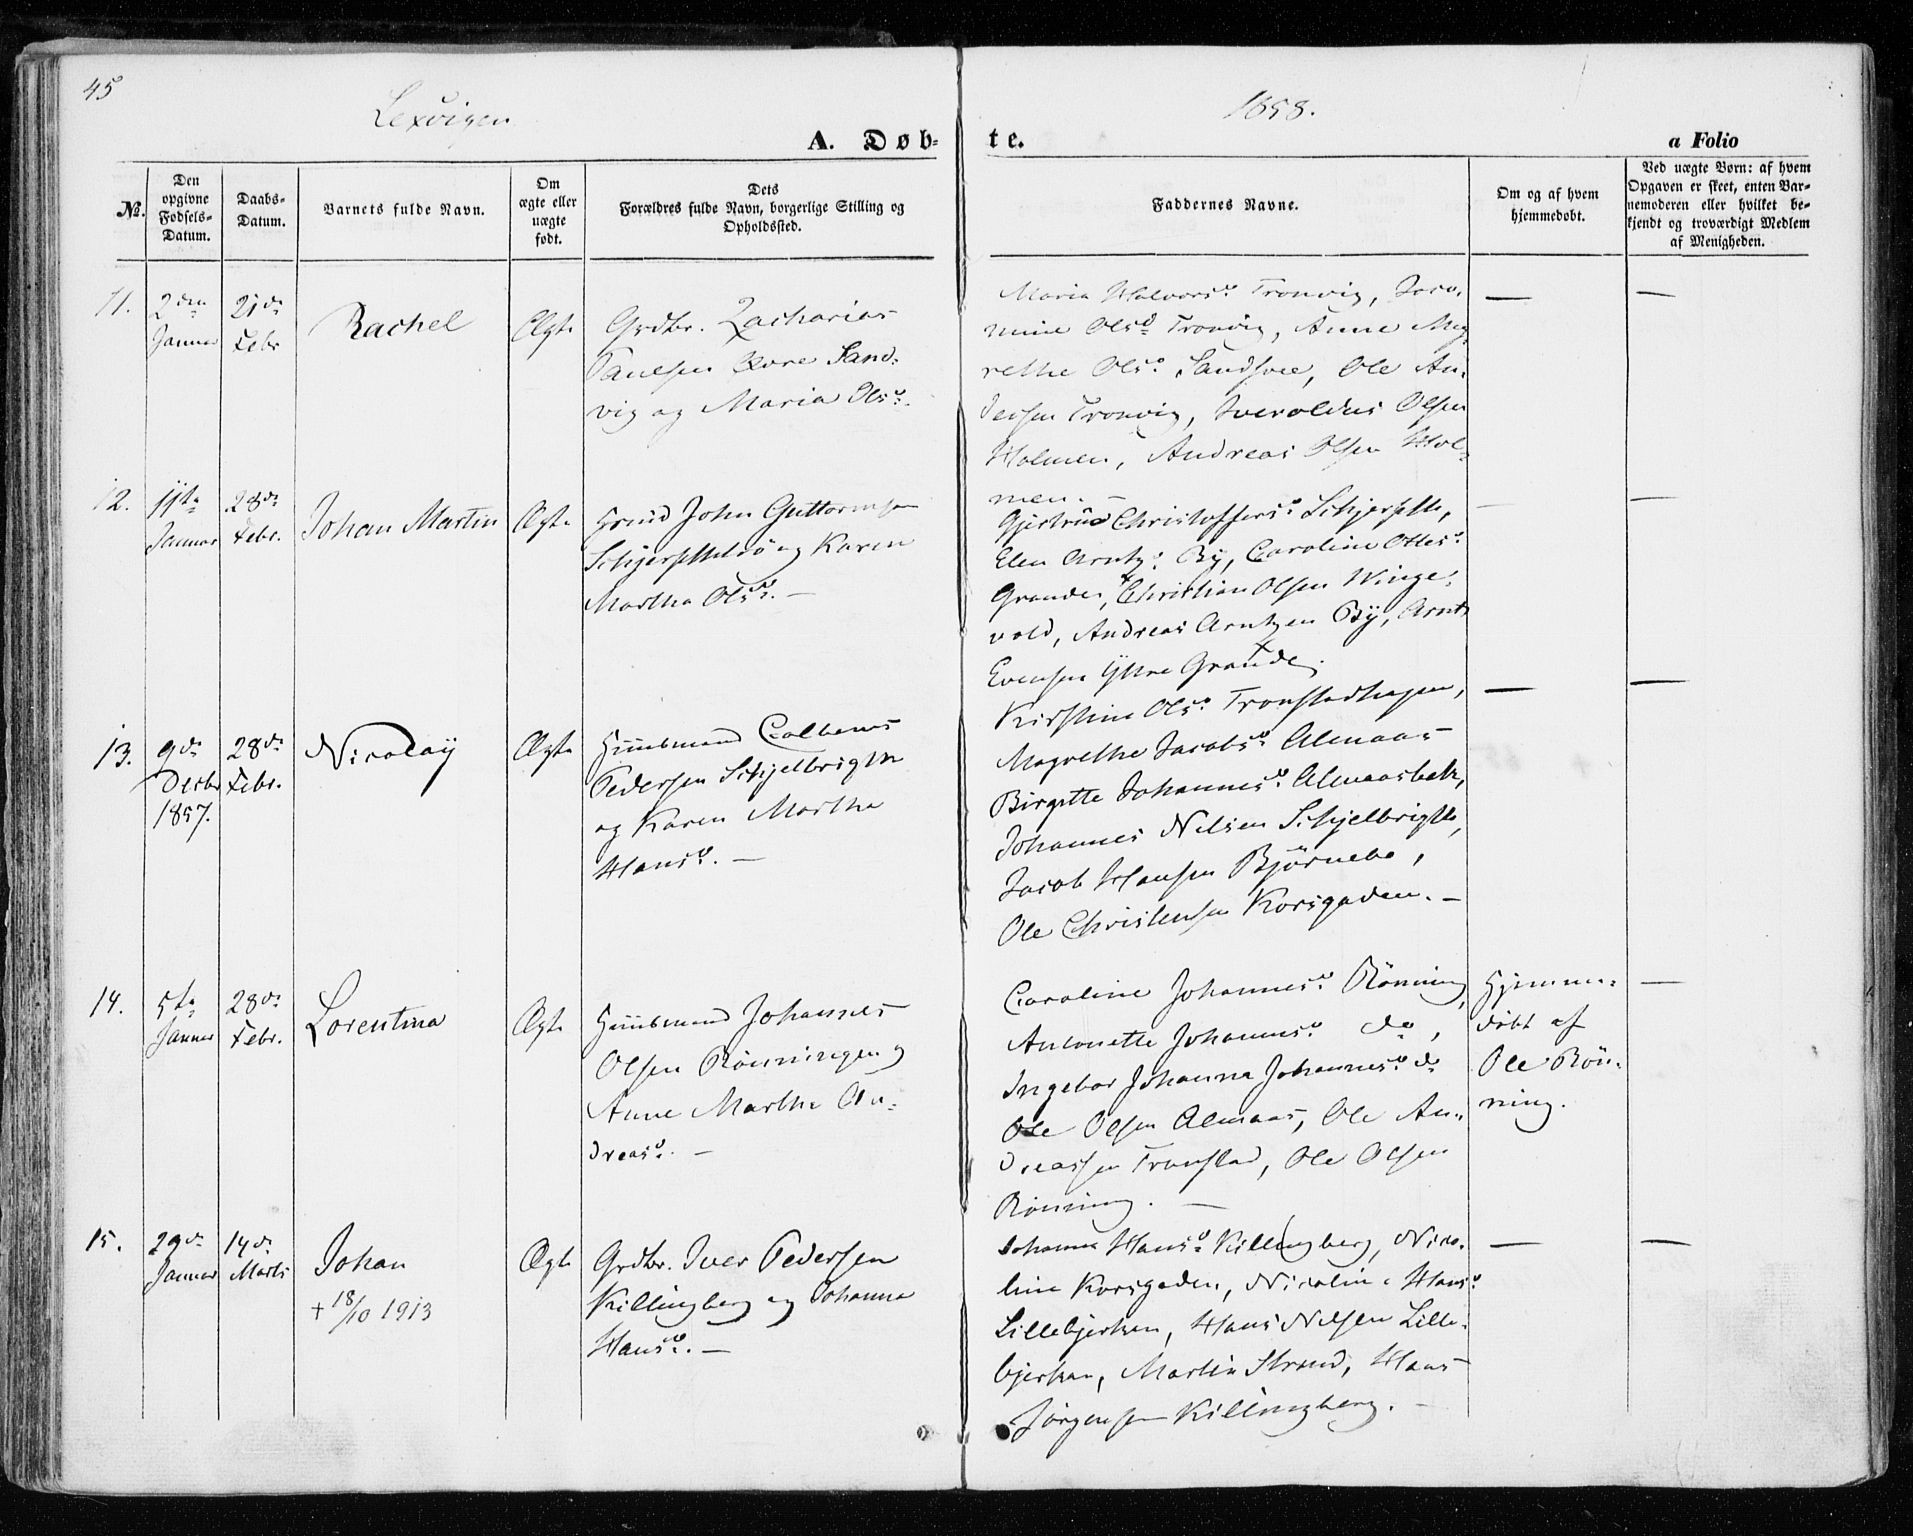 45
Lexvigen
1858.
A. Døb-
te.
a Folio
No.
Den opgivne Fødsels-Datum.
Daabs-Datum.
Barnets fulde Navn.
Om ægte eller uægte født.
Dets Forældres fulde Navn, borgerlige Stilling og Opholdssted.
Faddernes Navne.
Om og af hvem hjemmedøbt.
Ved uægte Børn: af hvem Opgaven er skeet, enten Barnemoderen eller hvilket bekjendt og troværdigt Medlem af Menigheden.
11.
2den Januar
21de Febr
Rachel
Ægte
Grdbr. Zacharias
Paulsen Øvre Sand-
vig og Maria Olsd.
Maria Halvorsd. Tronvig, Jaco-
mine Olsd. Tronvig, Anne Mag-
rethe Olsd. , Ole An-
dersen Tronvig, Olsen
Holmen, Andreas Olsen Hol-
men. —
—
—
12.
11te Januar
28de Febr.
Johan Martin
Ægte
John Guttormsen
og Karen
Martha Olsd. —
Gjertrud Christoffersd.
Elen Arntzd. By, Caroline Ottesd.
Grande, Christian Olsen Winge-
vold, Andreas Arntzen By, Arnt
Evensen Yttre Grande.
—
—
13.
9de Decbr 1857.
28de Febr.
Nicolaÿ
Ægte
Huusmand Colbenus
Pedersen
og Karen Martha
Hansd. —
Kirstine Olsd. Tronstadhagen,
Magrethe Jacobsd. Almaas
Birgitte Johannesd. Almaasbak,
Johannes Nilsen
Jacob Hansen Bjørnebo,
Ole Christensen Korsgaden. —
—
—
14.
5te Januar
28de Febr.
Lorentina
Ægte
Huusmand Johannes
Olsen Rönningen og
Anne Martha An-
dreasd. —
Caroline Johannesd. Rönning,
Antonette Johannesd. do,
Ingebor Johanna Johannesd. do
Ole Olsen Almaas, Ole An-
dreassen Tronstad, Ole Olsen
Rönning. —
Hjemme-
døbt af
Ole Rön-
ning.
—
15.
29de Januar
14de Marts
Johan
+ 18/10 1913
Ægte
Grdbr. Iver Pedersen
Killingberg og Johanna
Hansd. —
Johanna Hansd. Killingberg, Nico-
line Korsgaden, Nicoline Hansd.
Lillebjerken, Hans Nilsen Lille-
bjerken, Martin Strand, Hans
Jørgensen Killingberg. —
—
—